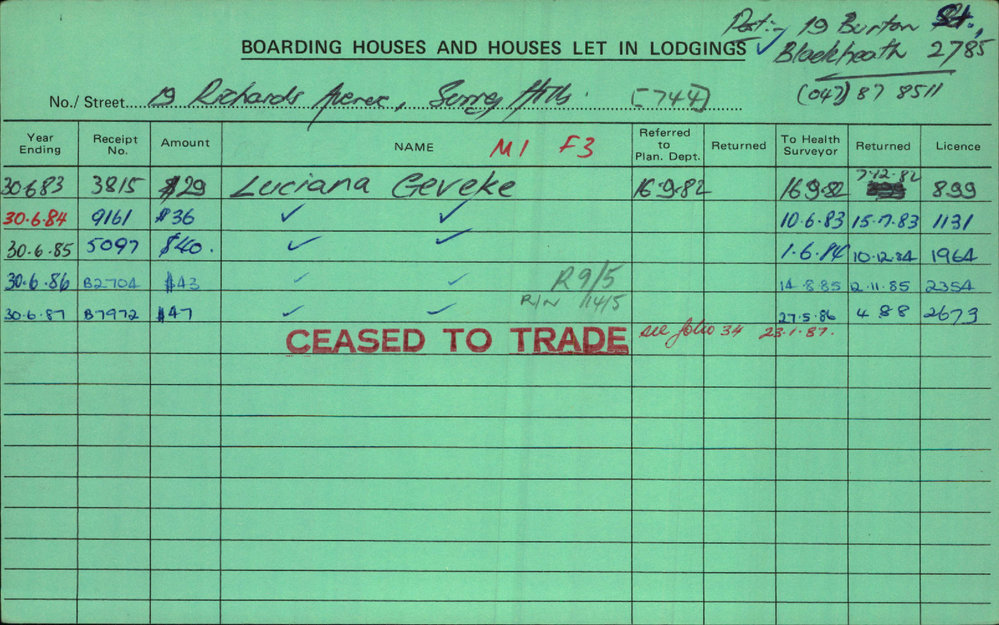 Post:- 19 Burton St.,
BOARDING HOUSES AND HOUSES LET IN LODGINGS ✓ Blackheath 2785
No./ Street. 19 Richards Avenue, Surrey Hills. (744) (047) 87 8511
Year Ending Receipt No. Amount NAME M1 F3 Referred to Plan. Dept. Returned To Health Surveyor Returned Licence
30.6.83 3815 $29 Luciana Geveke 16.9.82 16.9.82 7.12.82 899
30.6.84 9161 $36 ✓ ✓ 10.6.83 15.7.83 1131
30.6.85 5097 $40. ✓ ✓ 1.6.84 10.12.84 1964
30.6.86 B2704 $43 ✓ ✓ R9/5 14.8.85 12.11.85 2354
30.6.87 B7972 $47 ✓ ✓ R/N 14/5 27.5.86 4 8 8 2673
CEASED TO TRADE see folio 34 23.1.87.